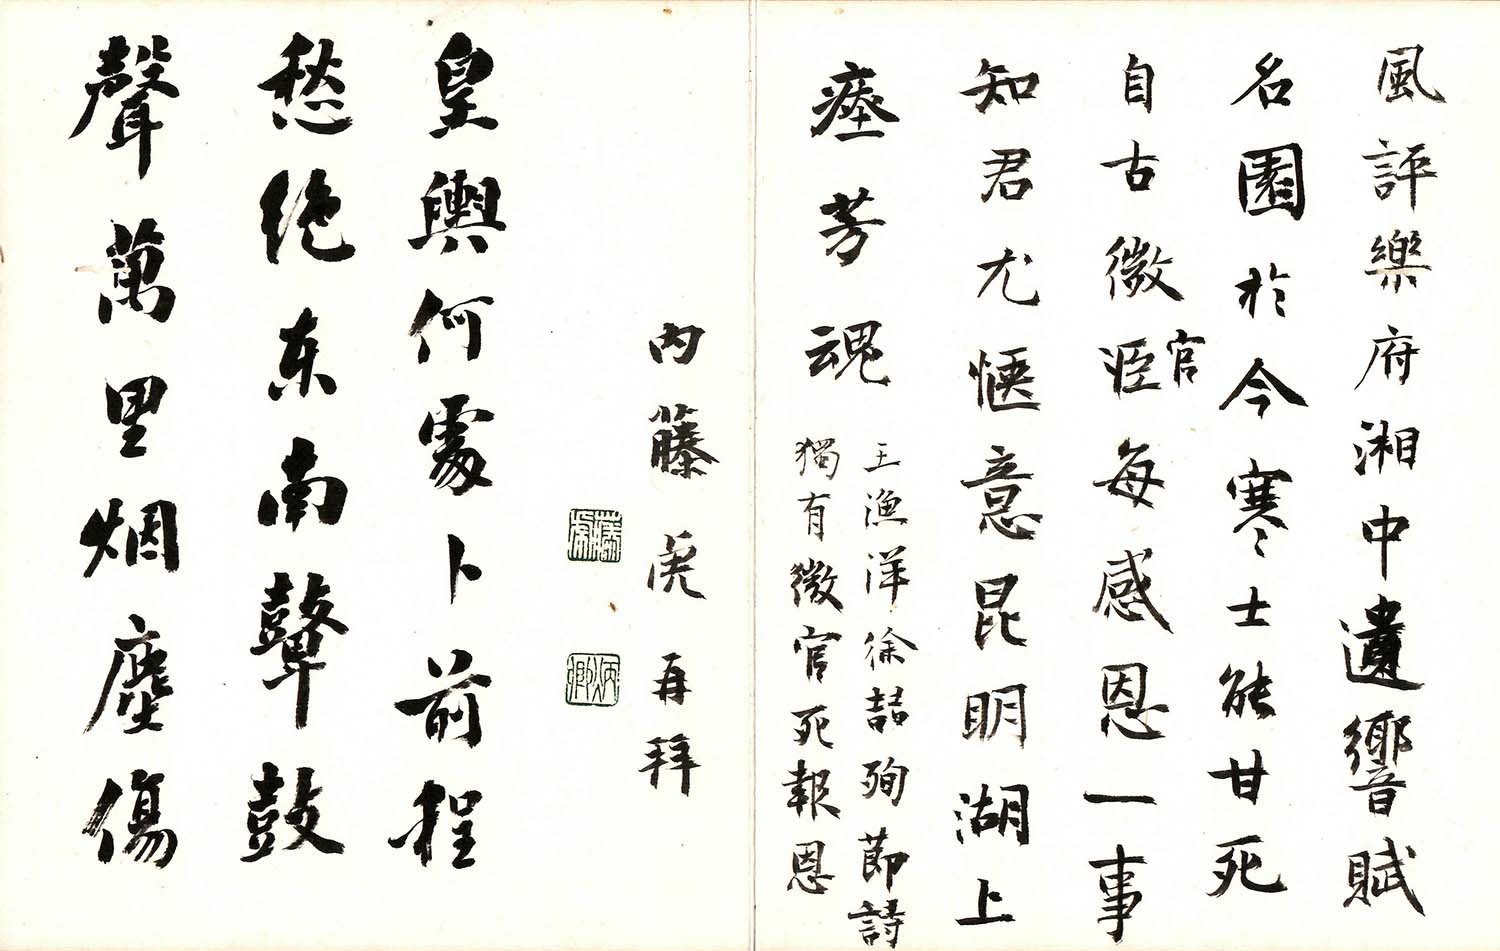 風評樂府湘中遺響賦
名園於今寒士能甘死
自古微臣每感恩一事
官
知君尤愜意昆明湖上
瘞芳魂
王漁洋徐喆殉節詩
獨有微官死報恩
内藤虎再拜
藤虎
炳卿
皇輿何處卜前程
愁絶東南鼙鼓
聲萬里烟塵傷